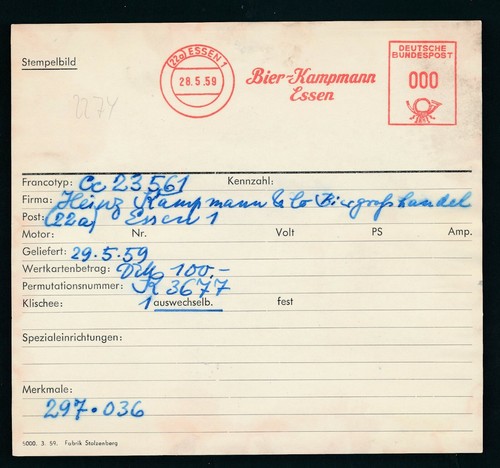 Stempelbild
(22a) ESSEN 1
28.5.59
Bier-Kampmann
Essen
DEUTSCHE
BUNDESPOST
000
2274
Francotyp: Cc 23561 Kennzahl:
Firma: Heinz Kampmann & Co Biergroßhandel
Post: (22a) Essen 1
Motor: Nr. Volt PS Amp.
Geliefert: 29.5.59
Wertkartenbetrag: DM 100,-
Permutationsnummer: K 3677
Klischee: 1 auswechselb. fest
Spezialeinrichtungen:
Merkmale:
297.036
5000. 3. 59. Fabrik Stolzenberg